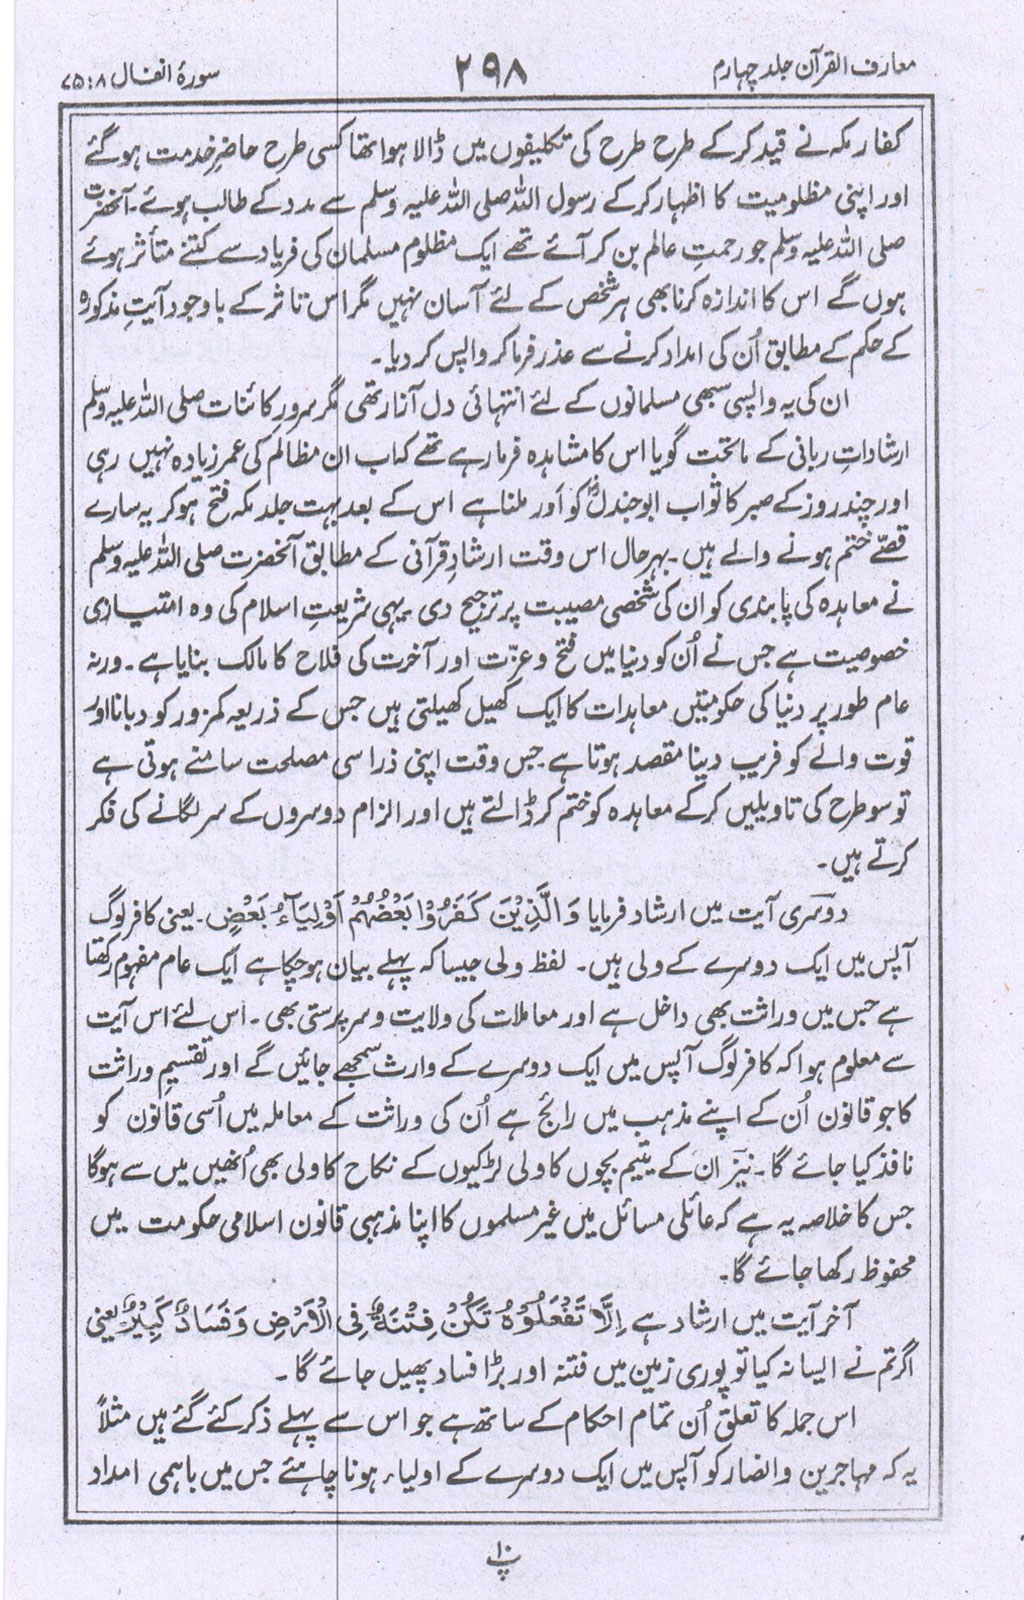 معارف القرآن جلد چہارم ۲۹۸ سورۂ انفال ۸ : ۷۵
کفار مکہ نے قید کر کے طرح طرح کی تکلیفوں میں ڈالا ہوا تھا کسی طرح حاضرِ خدمت ہو گئے
اور اپنی مظلومیت کا اظہار کرکے رسول اللہ صلی اللہ علیہ وسلم سے مدد کے طالب ہوئے۔ آنحضرت
صلی اللہ علیہ وسلم جو رحمتِ عالم بن کر آئے تھے ایک مظلوم مسلمان کی فریاد سے کتنے متأثر ہوئے
ہوں گے اس کا اندازہ کرنا بھی ہر شخص کے لئے آسان نہیں مگر اس تاثر کے باوجود آیتِ مذکورہ
کے حکم کے مطابق اُن کی امداد کرنے سے عذر فرما کر واپس کر دیا۔
ان کی یہ واپسی سبھی مسلمانوں کے لئے انتہائی دل آزار تھی مگر سرورِ کائنات صلی اللہ علیہ وسلم
ارشاداتِ ربانی کے ماتحت گویا اس کا مشاہدہ فرما رہے تھے کہ اب ان مظالم کی عمر زیادہ نہیں رہی
اور چند روز کے صبر کا ثواب ابوجندلؓ کو اَور ملنا ہے اس کے بعد بہت جلد مکہ فتح ہو کر یہ سارے
قصّے ختم ہونے والے ہیں۔ بہرحال اس وقت ارشادِ قرآنی کے مطابق آنحضرت صلی اللہ علیہ وسلم
نے معاہدہ کی پابندی کو ان کی شخصی مصیبت پر ترجیح دی۔ یہی شریعتِ اسلام کی وہ امتیازی
خصوصیت ہے جس نے اُن کو دنیا میں فتح و عزّت اور آخرت کی فلاح کا مالک بنایا ہے۔ ورنہ
عام طور پر دنیا کی حکومتیں معاہدات کا ایک کھیل کھیلتی ہیں جس کے ذریعہ کمزور کو دبانا اور
قوت والے کو فریب دینا مقصد ہوتا ہے۔ جس وقت اپنی ذرا سی مصلحت سامنے ہوتی ہے
تو سو طرح کی تاویلیں کرکے معاہدہ کو ختم کر ڈالتے ہیں اور الزام دوسروں کے سر لگانے کی فکر
کرتے ہیں۔
دوسری آیت میں ارشاد فرمایا وَالَّذِیْنَ کَفَرُوْا بَعْضُھُمْ اَوْلِیَآءُ بَعْضٍ۔ یعنی کافر لوگ
آپس میں ایک دوسرے کے ولی ہیں۔ لفظ ولی جیسا کہ پہلے بیان ہو چکا ہے ایک عام مفہوم رکھتا
ہے جس میں وراثت بھی داخل ہے اور معاملات کی ولایت و سرپرستی بھی۔ اس لئے اس آیت
سے معلوم ہوا کہ کافر لوگ آپس میں ایک دوسرے کے وارث سمجھے جائیں گے اور تقسیمِ وراثت
کا جو قانون اُن کے اپنے مذہب میں رائج ہے اُن کی وراثت کے معاملہ میں اُسی قانون کو
نافذ کیا جائے گا۔ نیز ان کے یتیم بچوں کا ولی لڑکیوں کے نکاح کا ولی بھی اُنھیں میں سے ہوگا
جس کا خلاصہ یہ ہے کہ عائلی مسائل میں غیر مسلموں کا اپنا مذہبی قانون اسلامی حکومت میں
محفوظ رکھا جائے گا۔
آخر آیت میں ارشاد ہے اِلَّا تَفْعَلُوْہُ تَکُنْ فِتْنَۃٌ فِی الْاَرْضِ وَفَسَادٌ کَبِیْرٌ یعنی
اگر تم نے ایسا نہ کیا تو پوری زمین میں فتنہ اور بڑا فساد پھیل جائے گا۔
اس جملہ کا تعلق اُن تمام احکام کے ساتھ ہے جو اس سے پہلے ذکر کئے گئے ہیں مثلاً
یہ کہ مہاجرین و انصار کو آپس میں ایک دوسرے کے اولیاء ہونا چاہئے جس میں باہمی امداد
پ۱۰